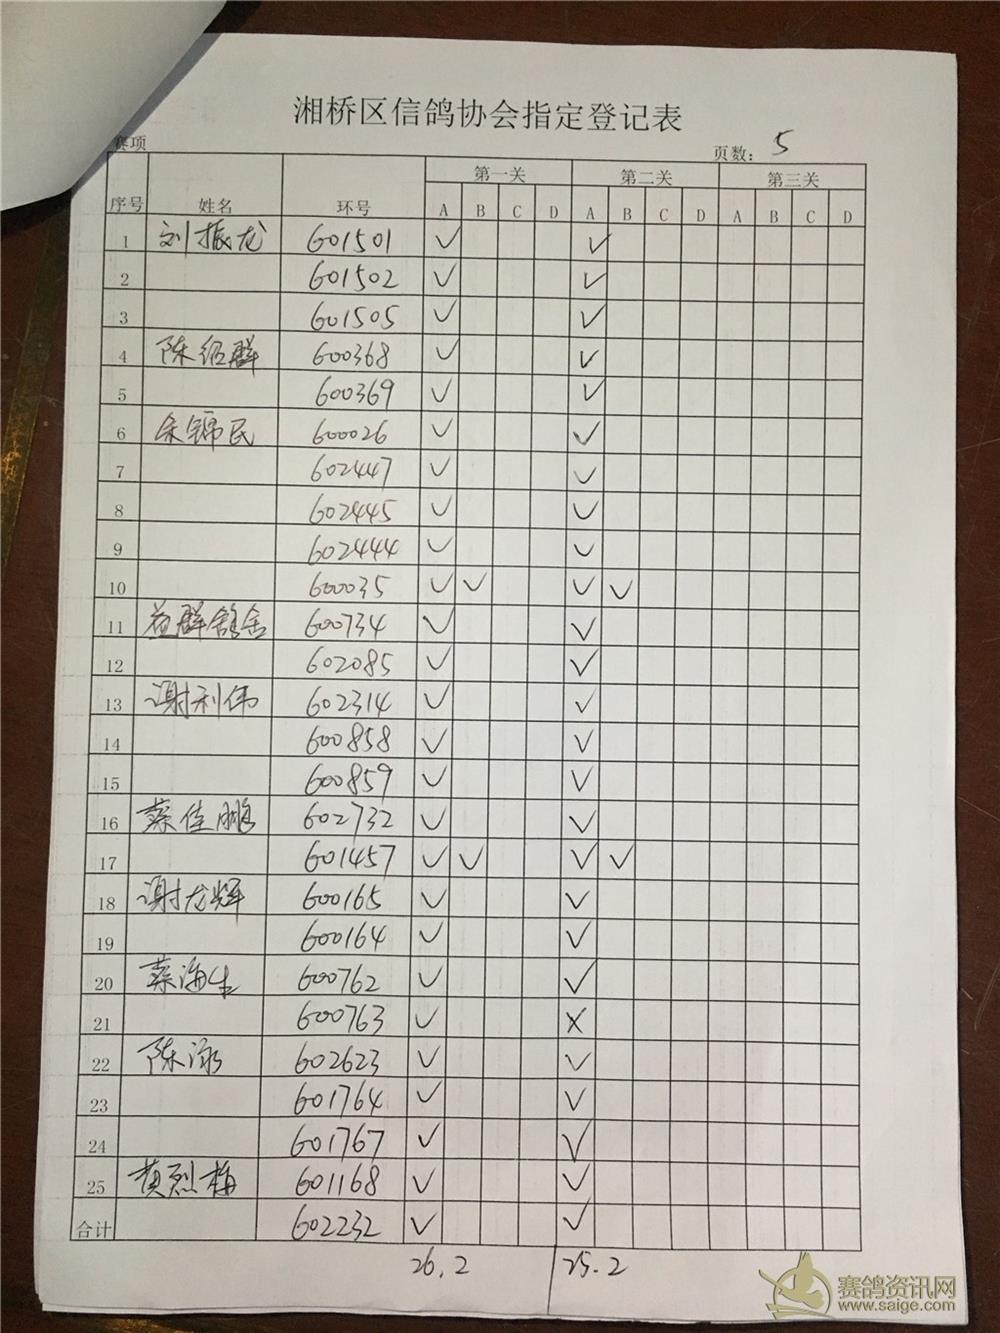 湘桥区信鸽协会指定登记表
赛项 页数: 5
第一关 第二关 第三关
序号 姓名 环号 A B C D A B C D A B C D
1 刘振龙 601501 ✓ ✓
2 601502 ✓ ✓
3 601505 ✓ ✓
4 陈绍群 600368 ✓ ✓
5 600369 ✓ ✓
6 余锦民 600026 ✓ ✓
7 602447 ✓ ✓
8 602445 ✓ ✓
9 602444 ✓ ✓
10 600035 ✓ ✓ ✓ ✓
11 益群鸽舍 600734 ✓ ✓
12 602085 ✓ ✓
13 谢利伟 602314 ✓ ✓
14 600858 ✓ ✓
15 600859 ✓ ✓
16 蔡佳鹏 602732 ✓ ✓
17 601457 ✓ ✓ ✓ ✓
18 谢龙辉 600165 ✓ ✓
19 600164 ✓ ✓
20 蔡海生 600762 ✓ ✓
21 600763 ✓ ×
22 陈泳 602623 ✓ ✓
23 601764 ✓ ✓
24 601767 ✓ ✓
25 黄烈梅 601168 ✓ ✓
合计 602232 ✓ ✓
26.2 25.2
赛鸽资讯网
www.saige.com